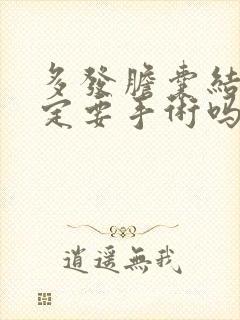 多發膽囊結
定要手術吗
逍遥無我